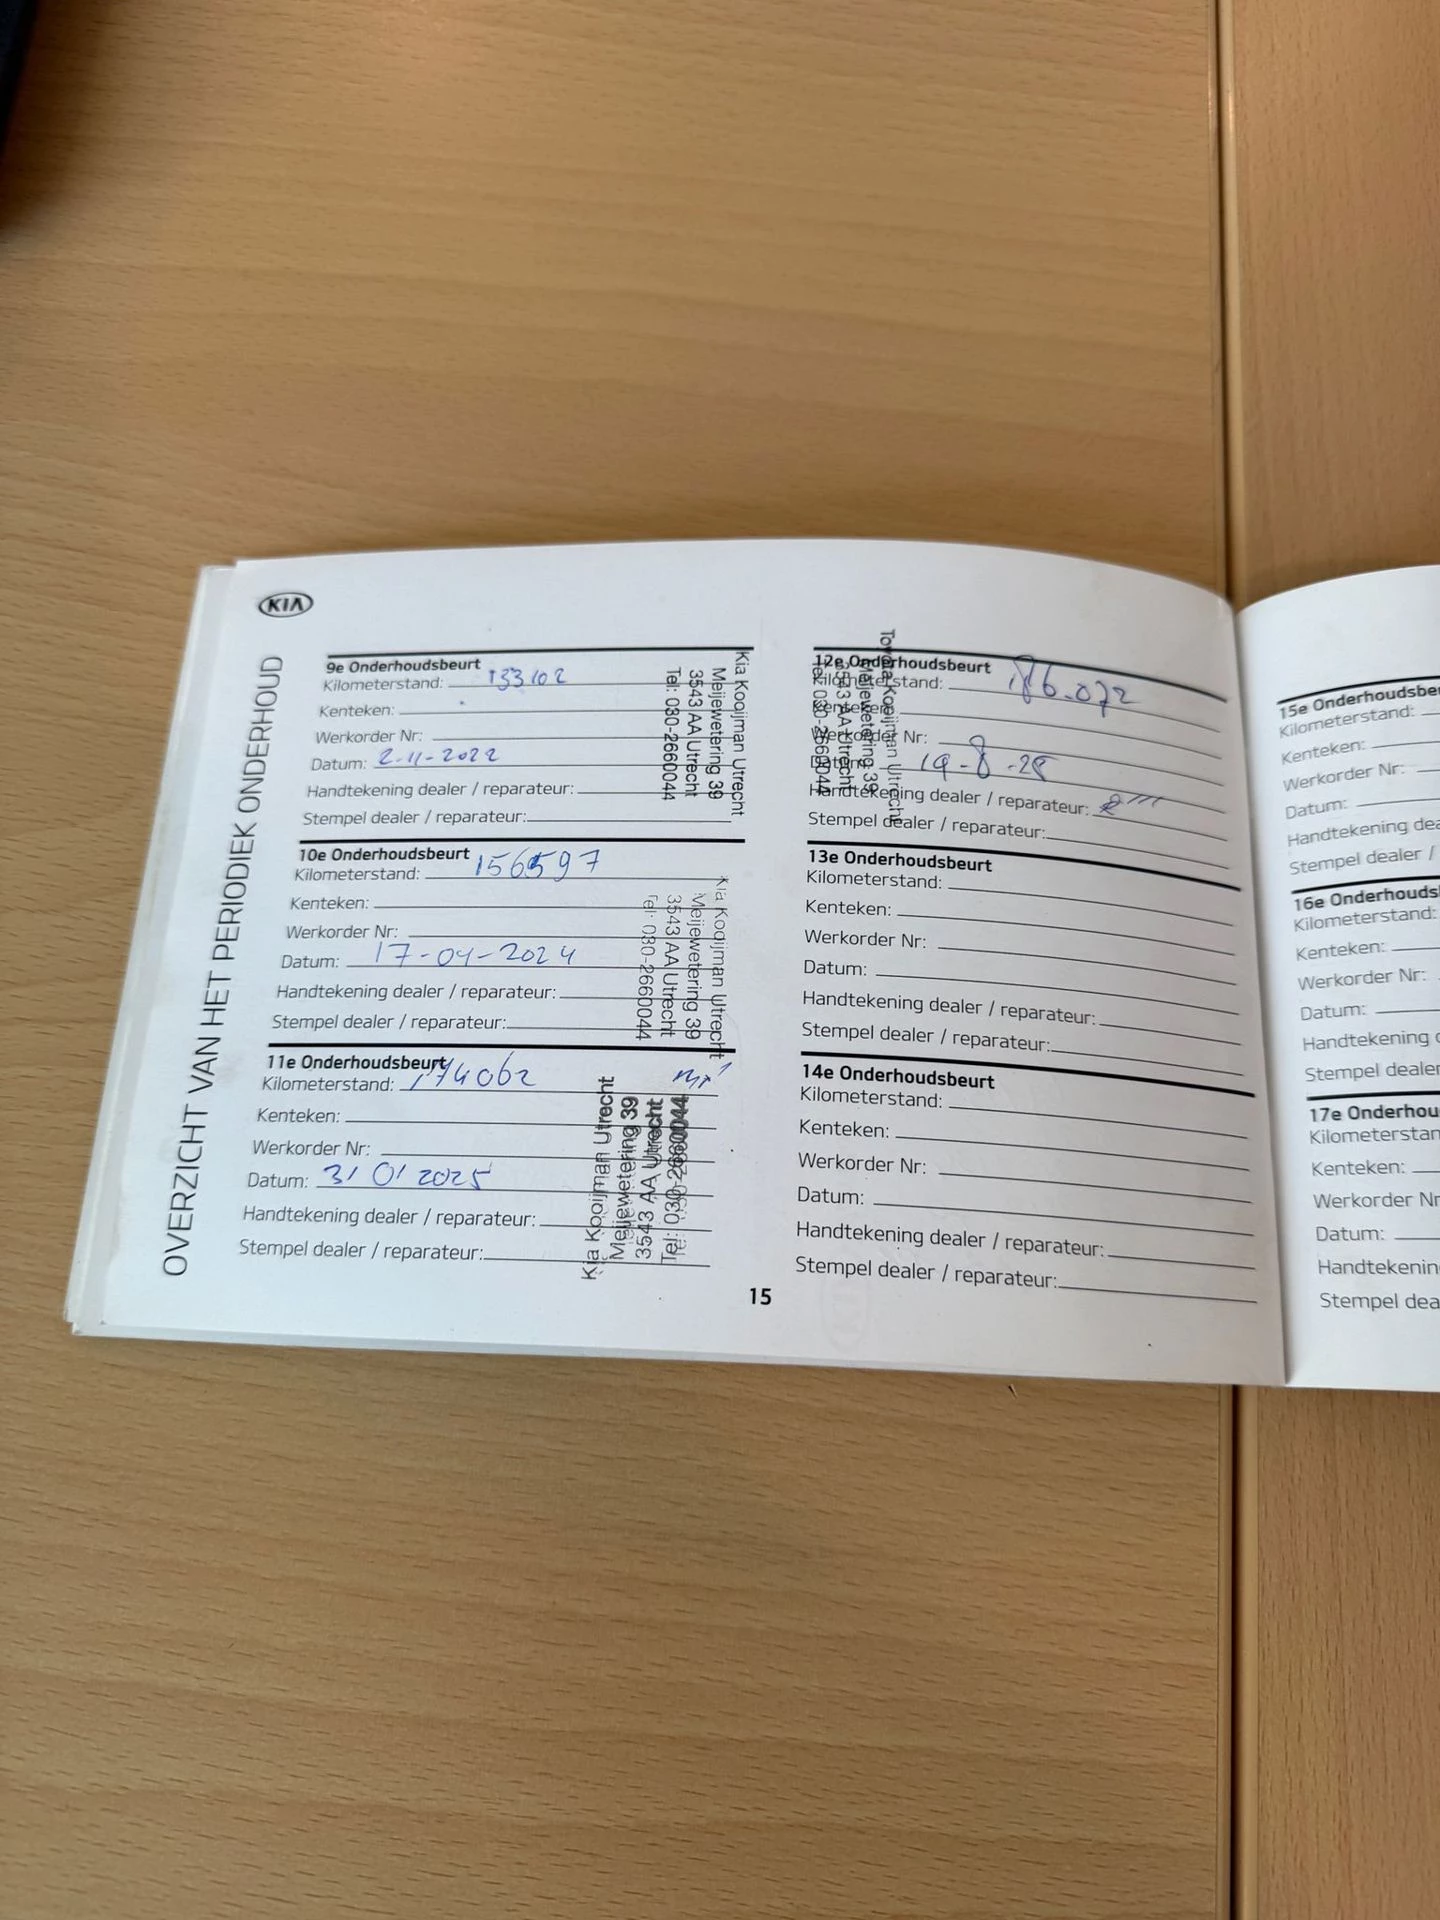 KIA
OVERZICHT VAN HET PERIODIEK ONDERHOUD
9e Onderhoudsbeurt
Kilometerstand: 133102
Kenteken:
Werkorder Nr:
Datum: 2-11-2022
Handtekening dealer / reparateur:
Stempel dealer / reparateur:
Kia Kooijman Utrecht
Meijewetering 39
3543 AA Utrecht
Tel: 030-2660044
10e Onderhoudsbeurt
Kilometerstand: 156597
Kenteken:
Werkorder Nr:
Datum: 17-04-2024
Handtekening dealer / reparateur:
Stempel dealer / reparateur:
Kia Kooijman Utrecht
Meijewetering 39
3543 AA Utrecht
Tel: 030-2660044
11e Onderhoudsbeurt
Kilometerstand: 174062
Kenteken:
Werkorder Nr:
Datum: 31 01 2025
Handtekening dealer / reparateur:
Stempel dealer / reparateur:
Kia Kooijman Utrecht
Meijewetering 39
3543 AA Utrecht
Tel: 030-2660044
12e Onderhoudsbeurt
Kilometerstand: 186.072
Kenteken:
Werkorder Nr:
Datum: 19-8-25
Handtekening dealer / reparateur:
Stempel dealer / reparateur:
Toyota Kooijman Utrecht
Meijewetering 39
3543 AA Utrecht
Tel: 030-2660044
13e Onderhoudsbeurt
Kilometerstand:
Kenteken:
Werkorder Nr:
Datum:
Handtekening dealer / reparateur:
Stempel dealer / reparateur:
14e Onderhoudsbeurt
Kilometerstand:
Kenteken:
Werkorder Nr:
Datum:
Handtekening dealer / reparateur:
Stempel dealer / reparateur:
15
15e Onderhoudsbe
Kilometerstand:
Kenteken:
Werkorder Nr:
Datum:
Handtekening dea
Stempel dealer /
16e Onderhouds
Kilometerstand:
Kenteken:
Werkorder Nr:
Datum:
Handtekening
Stempel dealer
17e Onderhou
Kilometerstan
Kenteken:
Werkorder N
Datum:
Handtekenin
Stempel dea